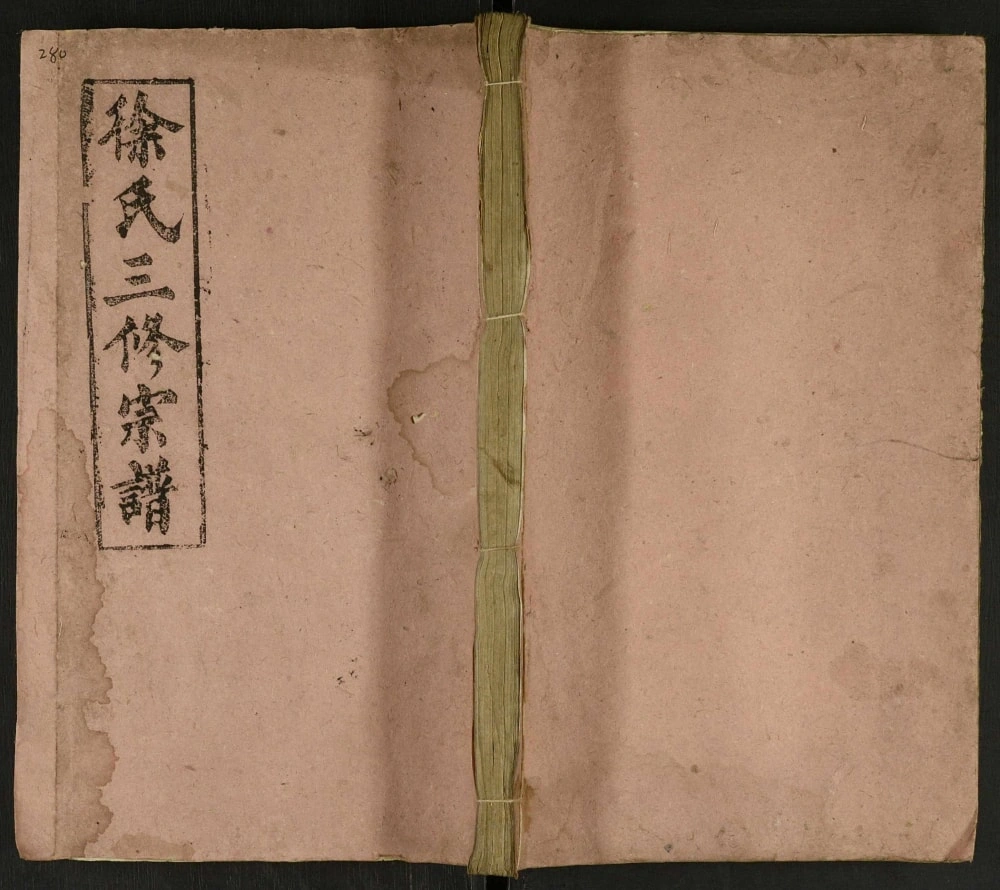 280
徐氏三修宗譜